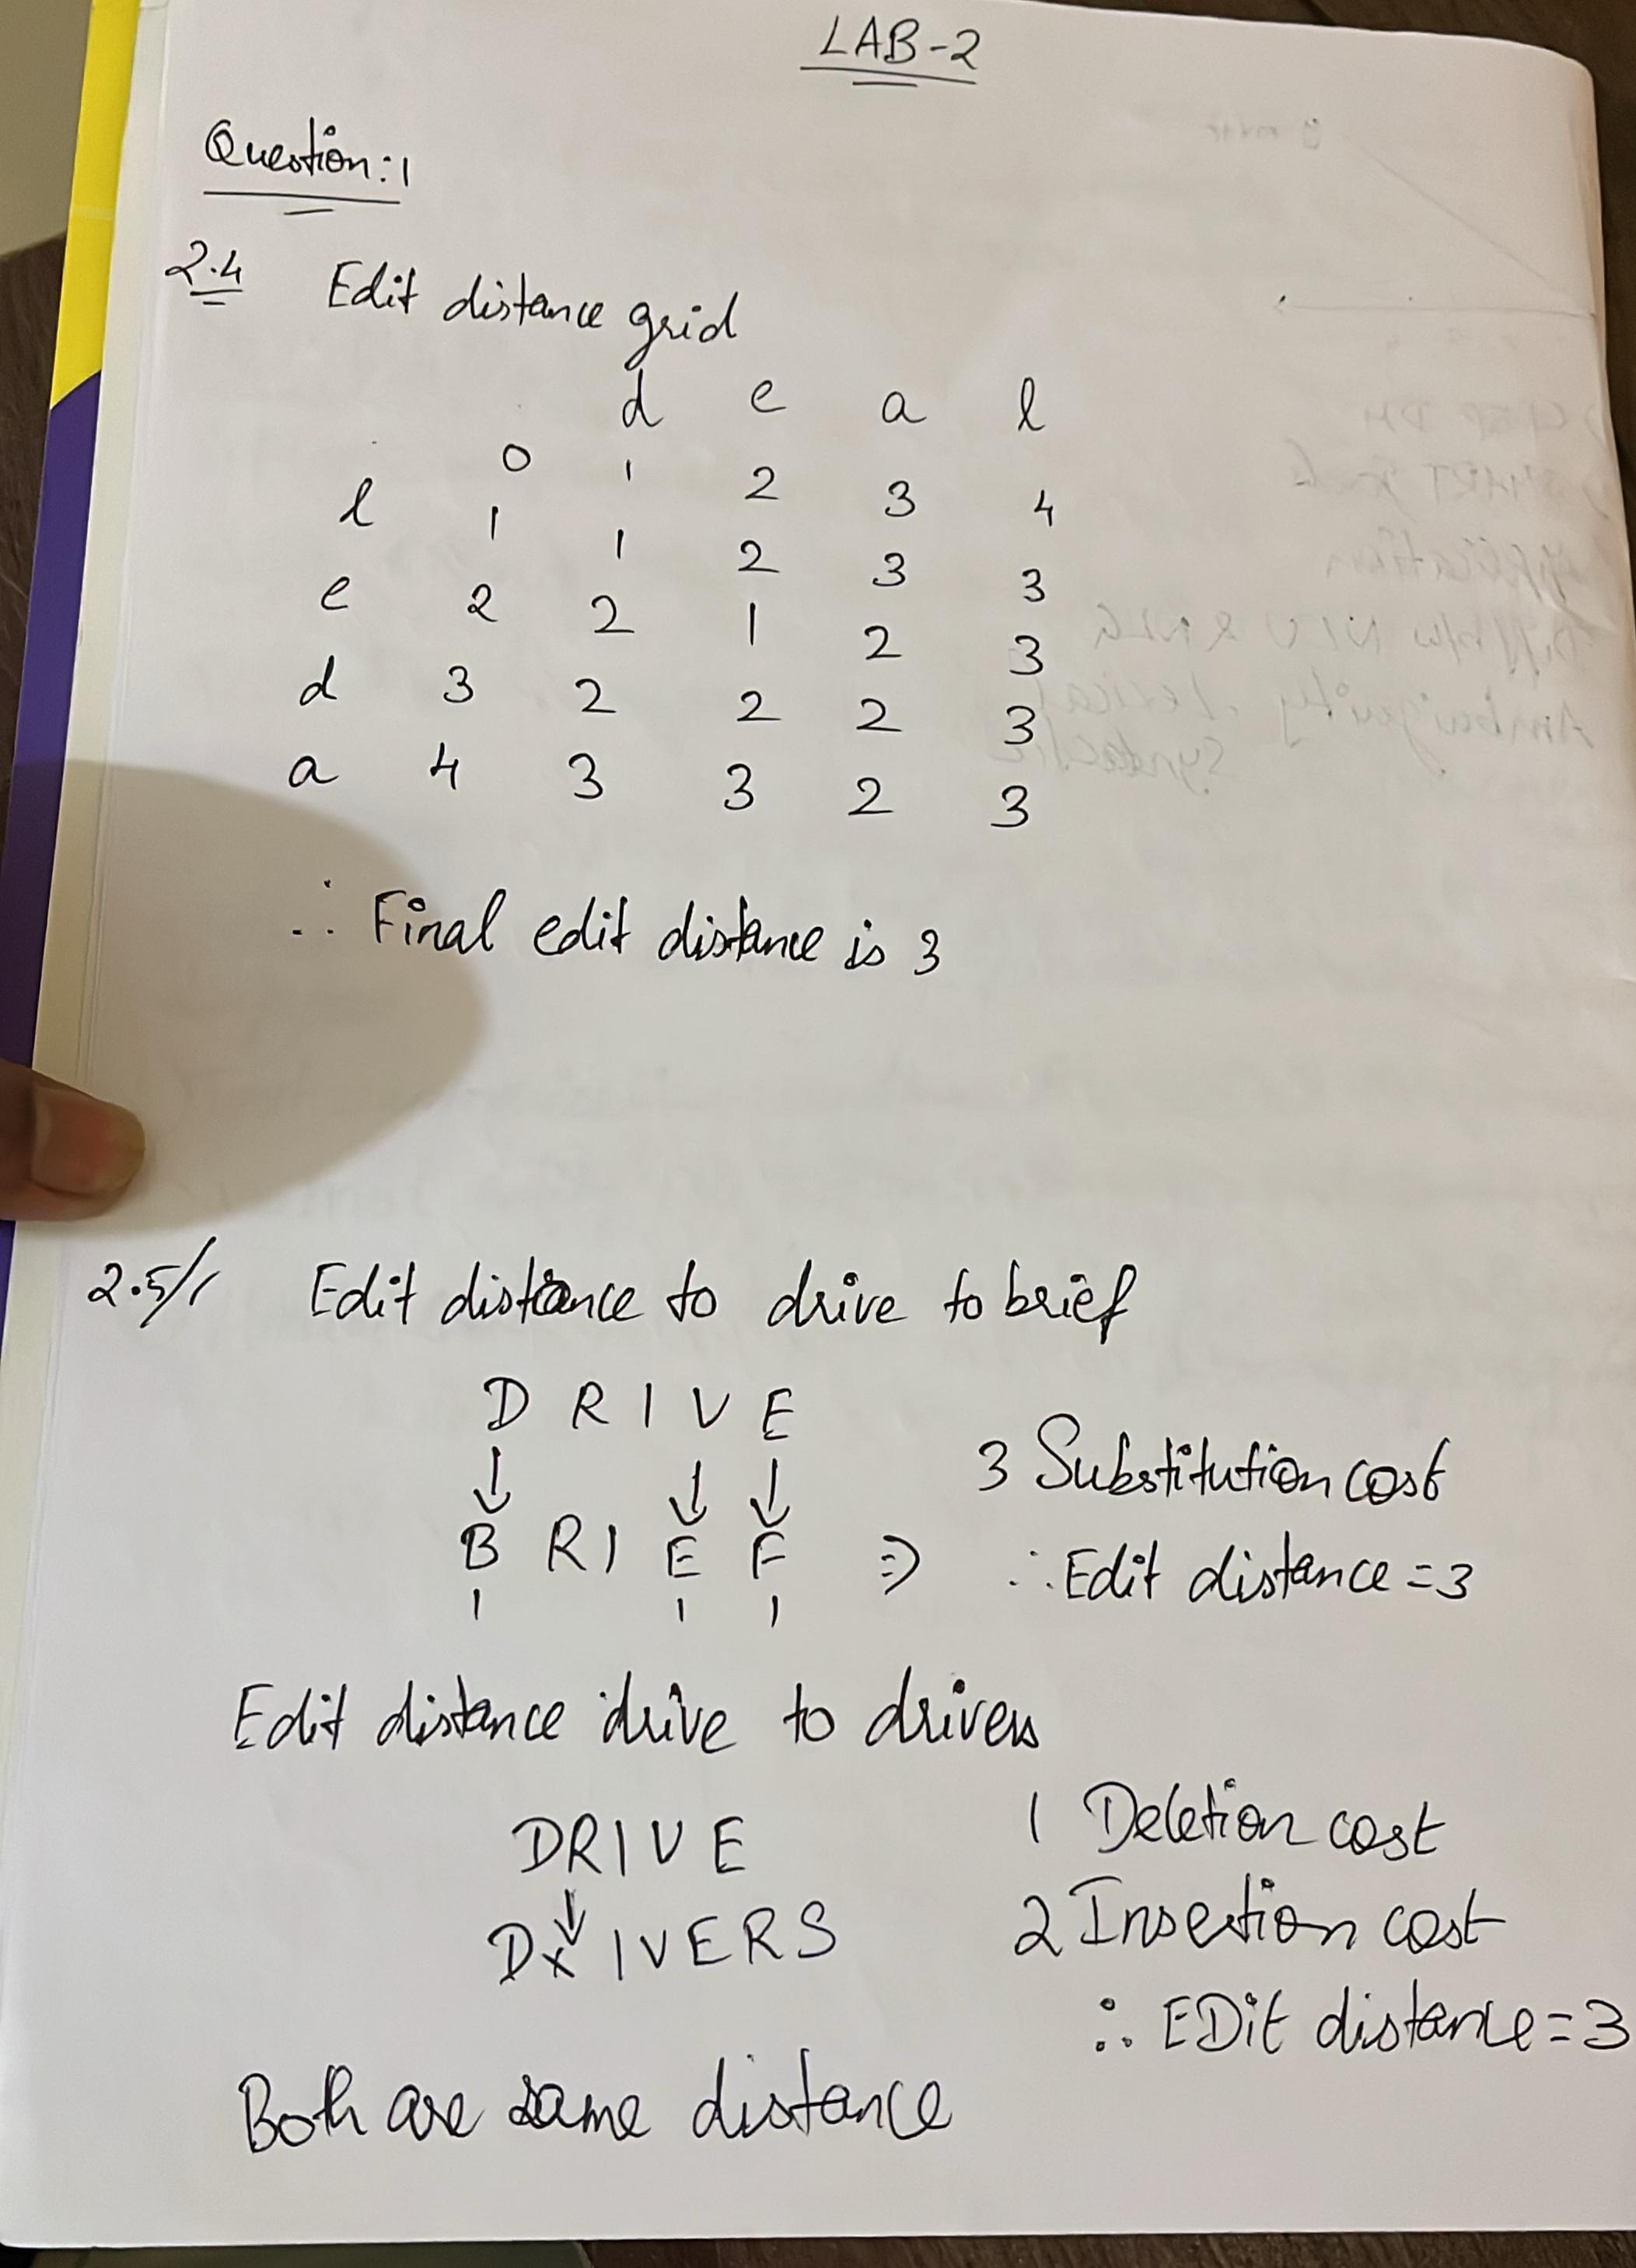 LAB-2
Question:1
2.4 Edit distance grid
d e a l
0 1 2 3 4
l 1 1 2 3 3
e 2 2 1 2 3
d 3 2 2 2 3
a 4 3 3 2 3
∴ Final edit distance is 3
2.5/1 Edit distance to drive to brief
D R I V E
↓ ↓ ↓ 3 Substitution cost
B R I E F ⇒ ∴ Edit distance = 3
1 1 1
Edit distance drive to drivers
DRIVE 1 Deletion cost
↓
Dx IVERS 2 Insertion cost
∴ EDit distance = 3
Both are same distance